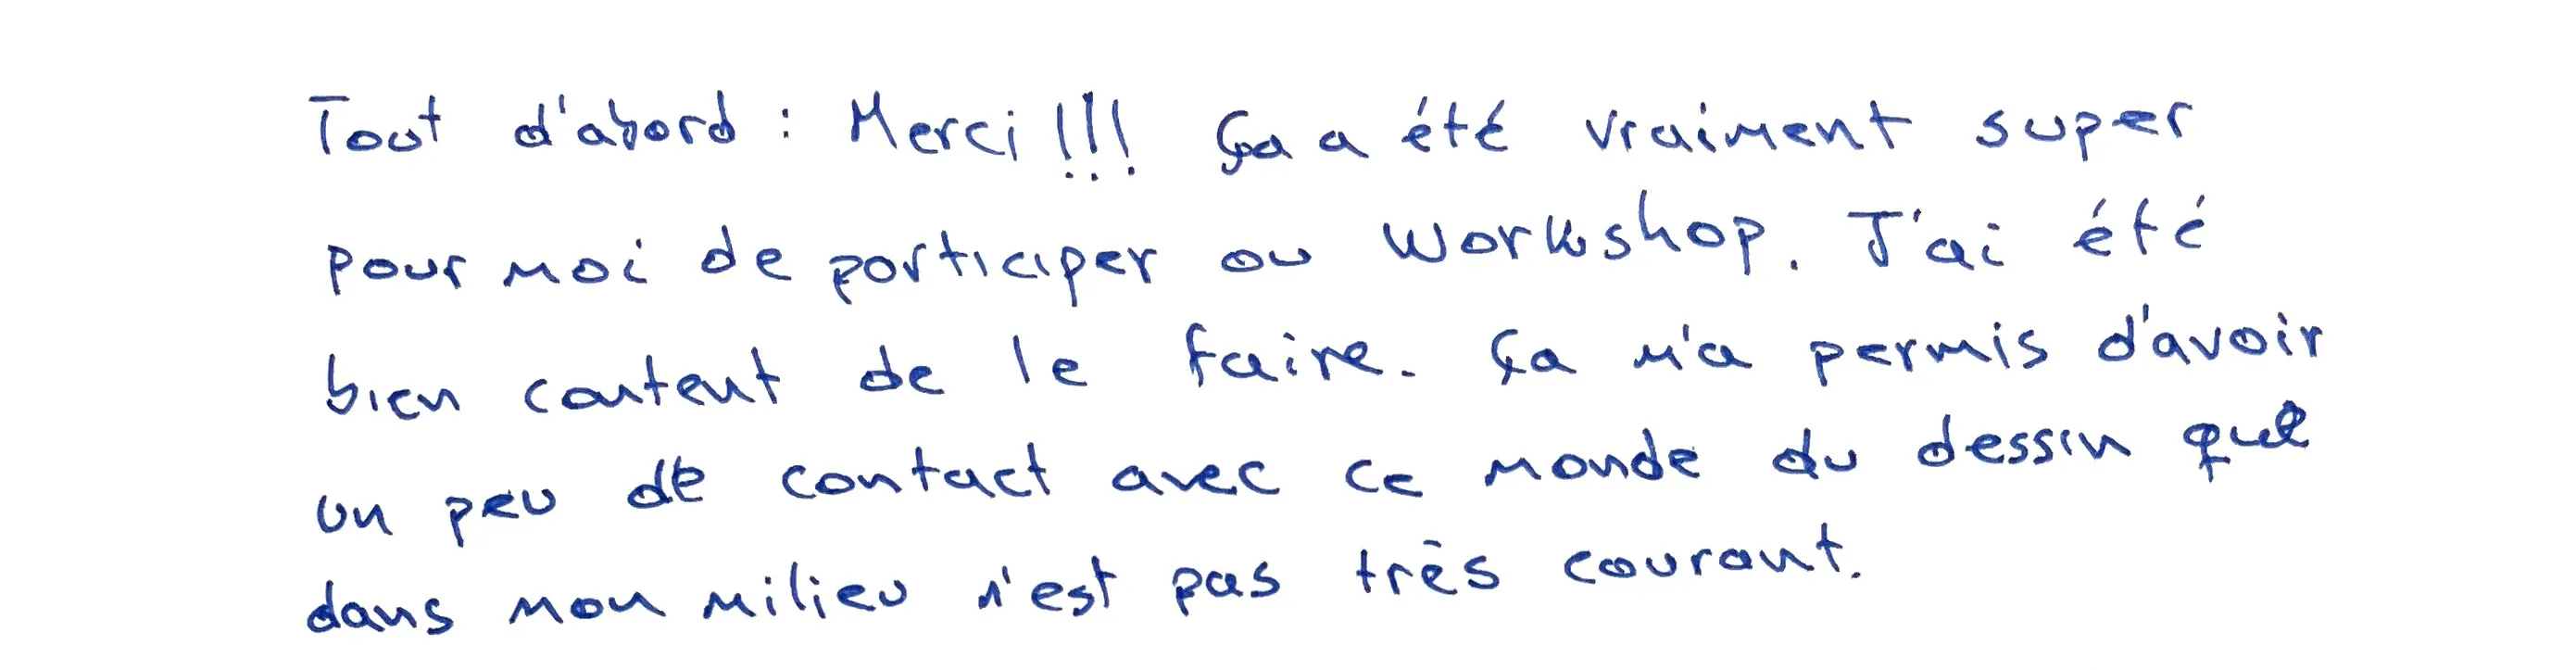 Tout d'abord : Merci !!! Ça a été vraiment super
pour moi de participer au workshop. J'ai été
bien content de le faire. Ça m'a permis d'avoir
un peu de contact avec ce monde du dessin que
dans mon milieu n'est pas très courant.